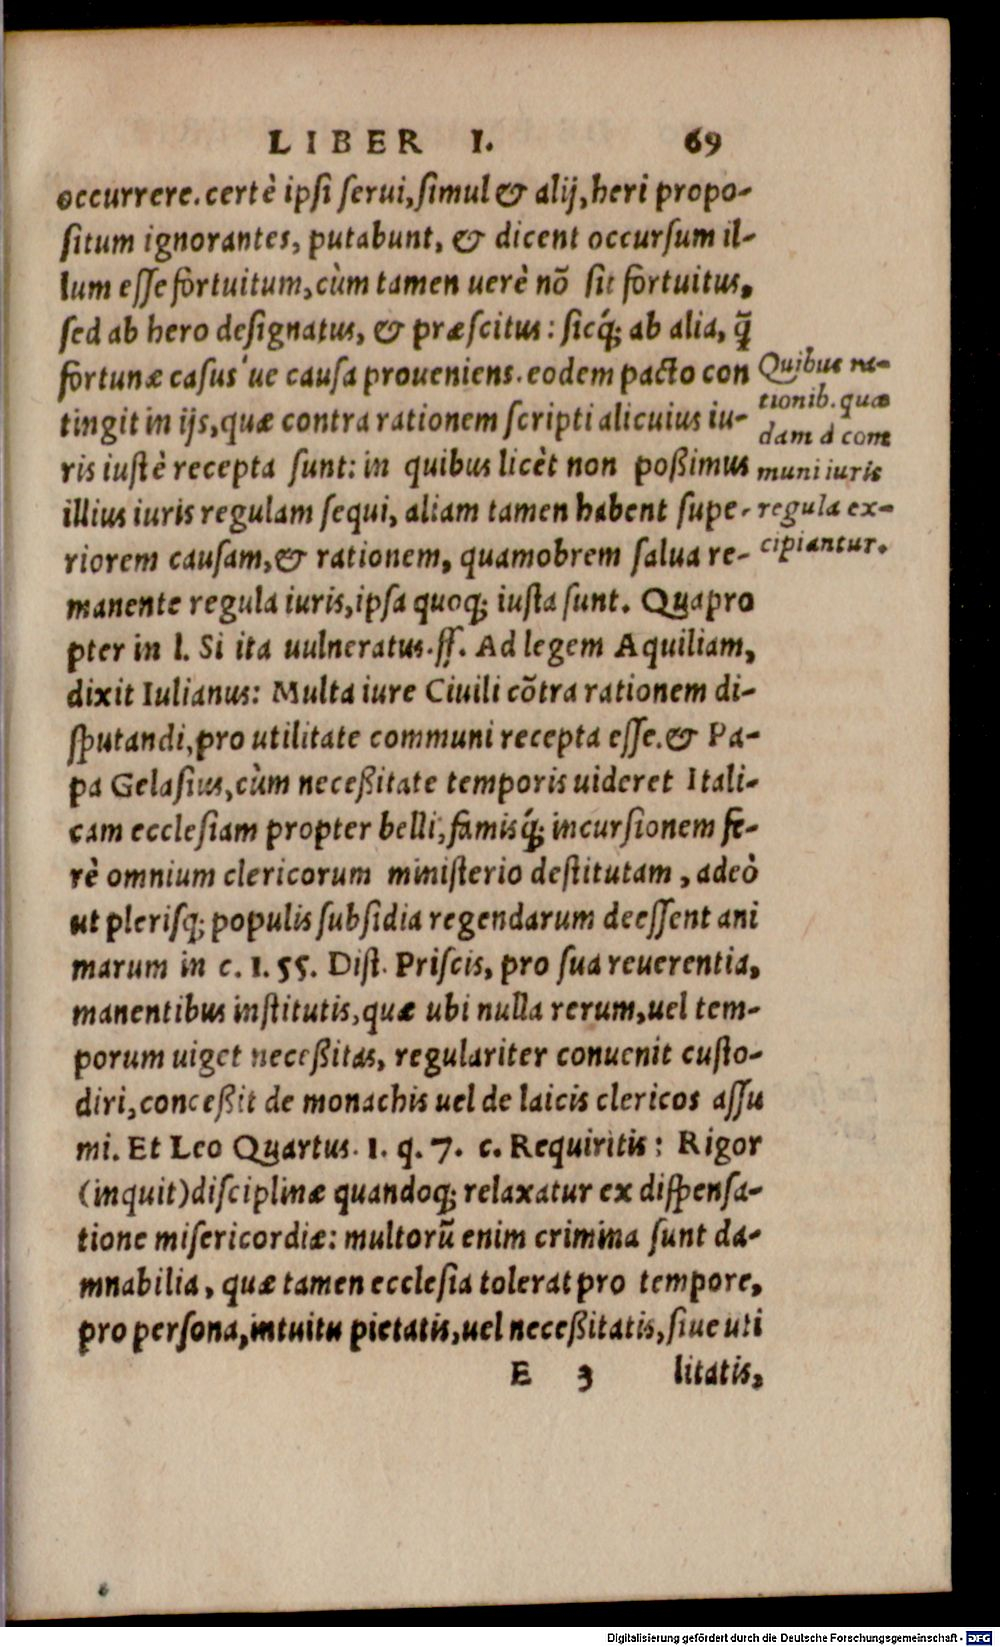 LIBER I. 69
occurrere. certè ipsi serui, simul & alij, heri propo-
situm ignorantes, putabunt, & dicent occursum il-
lum esse fortuitum, cùm tamen uerè nõ sit fortuitus,
sed ab hero designatus, & præscitus: sicq́; ab alia, q̃
fortunæ casus ue causa proueniens. eodem pacto con
tingit in ijs, quæ contra rationem scripti alicuius iu-
ris iustè recepta sunt: in quibus licèt non poßimus
illius iuris regulam sequi, aliam tamen habent supe-
riorem causam, & rationem, quamobrem salua re-
manente regula iuris, ipsa quoq; iusta sunt. Quapro
pter in l. Si ita uulneratus. ff. Ad legem Aquiliam,
dixit Iulianus: Multa iure Ciuili cõtra rationem di-
sputandi, pro utilitate communi recepta esse. & Pa-
pa Gelasius, cùm neceßitate temporis uideret Itali-
cam ecclesiam propter belli, famisq́; incursionem fe-
rè omnium clericorum ministerio destitutam, adeò
ut plerisq; populis subsidia regendarum deessent ani
marum in c. 1. 55. Dist. Priscis, pro sua reuerentia,
manentibus institutis, quæ ubi nulla rerum, uel tem-
porum uiget neceßitas, regulariter conuenit custo-
diri, conceßit de monachis uel de laicis clericos assu
mi. Et Leo Quartus. 1. q. 7. c. Requiritis: Rigor
(inquit) disciplinæ quandoq; relaxatur ex dispensa-
tione misericordiæ: multorũ enim crimina sunt da-
mnabilia, quæ tamen ecclesia tolerat pro tempore,
pro persona, intuitu pietatis, uel neceßitatis, siue uti
E 3 litatis,
Quibus ra-
tionib. quæ
dam à com
muni iuris
regula ex-
cipiantur.
Digitalisierung gefördert durch die Deutsche Forschungsgemeinschaft - DFG